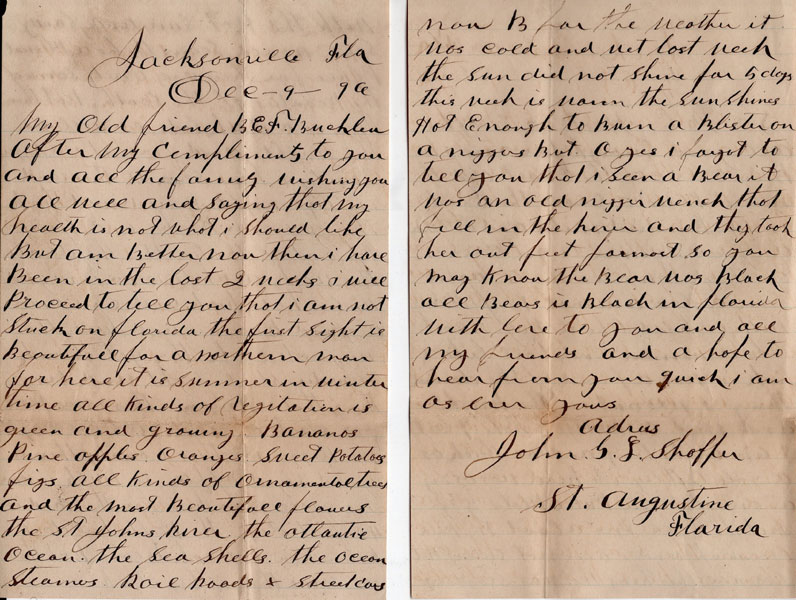 Jacksonville Fla
Dec - 9 - 90
My Old friend B.E.F. Buchler
After My Compliments to you
and all the family wishing you
all well and saying that my
health is not what i should like
But am Better now then i have
Been in the last 2 weeks i will
Proceed to tell you that i am not
Stuck on florida the first sight is
Beautifull for a northern man
for here it is summer in winter
time all kinds of vegitation is
green and growing Bananos
Pine apples Oranges Sweet Potatoes
figs all kinds of ornamental trees
and the most Beautifull flowers
the St Johns River the atlantic
Ocean. the Sea Shells. the ocean
Steames Rail Roads & Streetcars
now B for the weather it
was cold and wet last week
the sun did not shine for 5 days
this week is warm the sun shines
Hot Enough to Burn a Blister on
a niggers But O yes i forgot to
tell you that i seen a Bear it
was an old nigger wench that
fell in the river and they took
her out feet formost so you
may know the Bear was Black
all Bears is Black in florida
With love to you and all
my friends and a hope to
hear from you quick i am
as ever yours
Adres
John S. S. Shoffer
St. Augustine
Florida